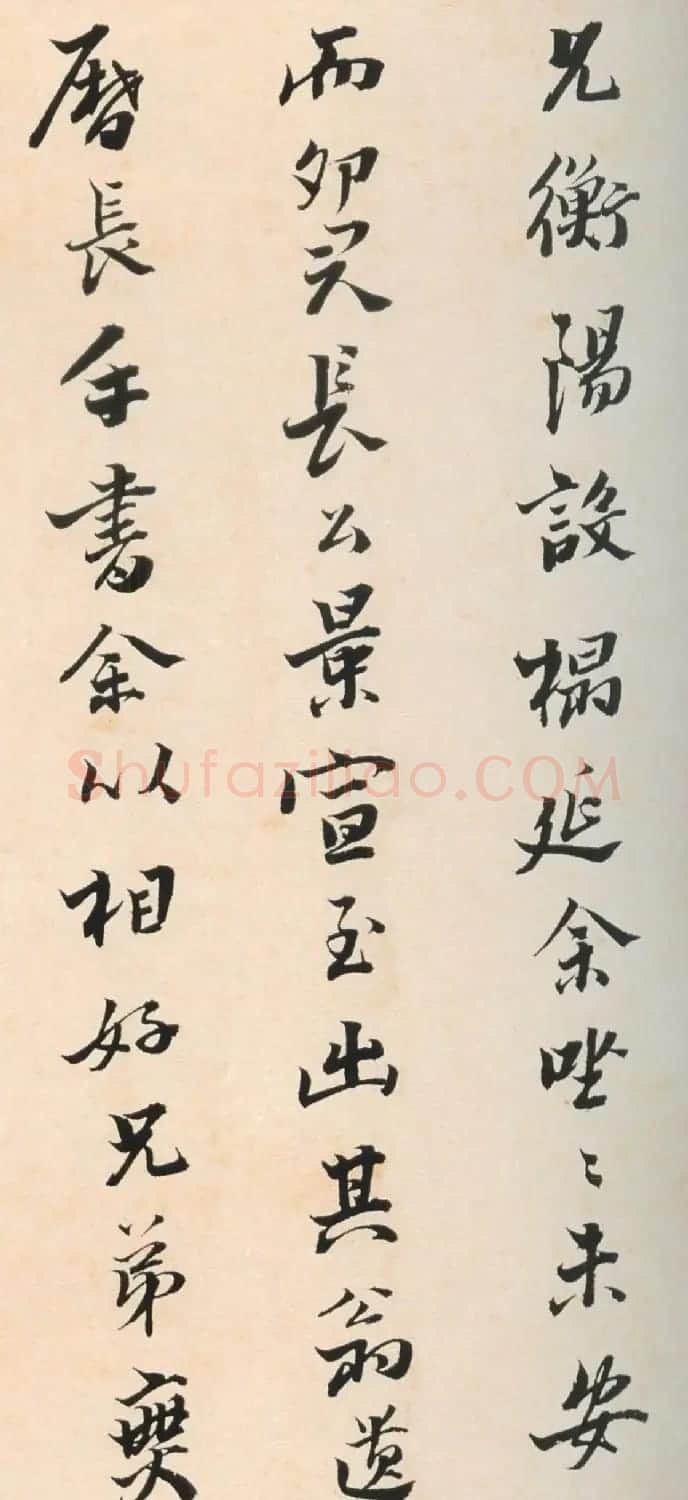 兄衡陽設榻延余坐〻未安
而夘長公景宣至出其翁遺
長手書余以相好兄弟
Shufaziliao.COM